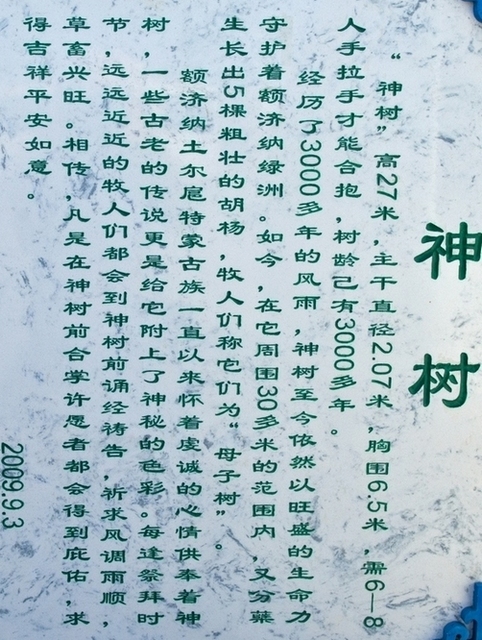 神树
“神树”高27米，主干直径2.07米，胸围6.5米，需6—8
人手拉手才能合抱，树龄已有3000多年。
经历了3000多年的风雨，神树至今依然以旺盛的生命力
守护着额济纳绿洲。如今，在它周围30多米的范围内，又分蘖
生长出5棵粗壮的胡杨，牧人们称它们为“母子树”。
额济纳土尔扈特蒙古族一直以来怀着虔诚的心情供奉着神
树，一些古老的传说更是给它附上了神秘的色彩。每逢祭拜时
节，远远近近的牧人们都会到神树前诵经祷告，祈求风调雨顺，
草畜兴旺。相传，凡是在神树前合掌许愿者都会得到庇佑，求
得吉祥平安如意。
2009.9.3